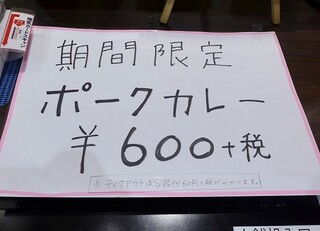 期間限定
ポークカレー
¥600+税
※テイクアウトは容器代60円+税がかかります。